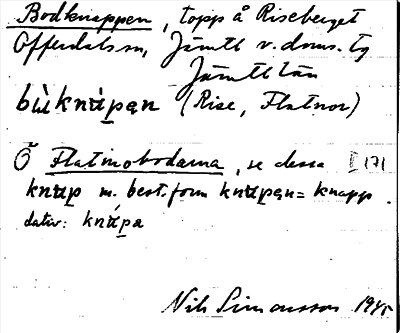 Bodknappen, topp å Riseberget
Offerdals sn, Jämtl v. doms. tg
Jämtl län
bùknápan (Rise, Flatnor)
Ö Flatmobodarna, se dessa I 171
knäp m. best. form knäpan = knapp
dativ: knäpa
Nils Simonsson 1945